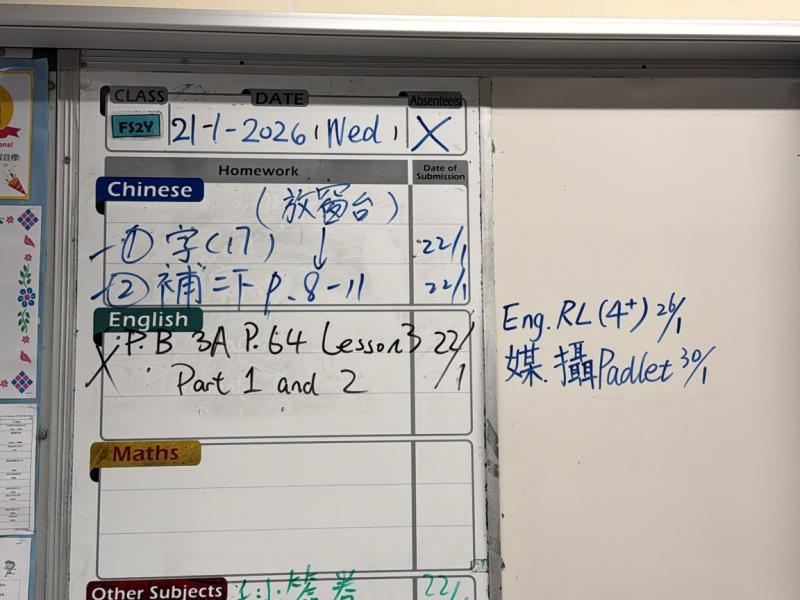 CLASS DATE Absentee(s)
FS2Y 21-1-2026 (Wed) X
Homework Date of Submission
Chinese
(放窗台)
① 字(17) ↓ 22/1
② 補二下 P.8-11 22/1
English
P.B 3A P.64 Lesson3 22/1
Part 1 and 2
Maths
Other Subjects 答卷 22/1
Eng. RL (4+) 26/1
媒.攝Padlet 30/1